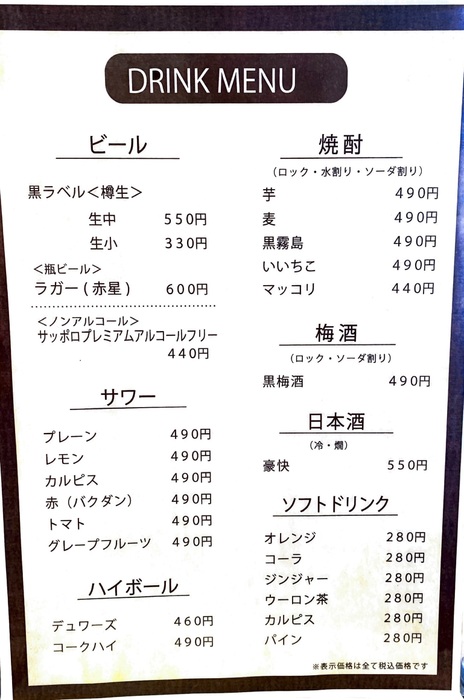 DRINK MENU
ビール
黒ラベル＜樽生＞
生中 550円
生小 330円
＜瓶ビール＞
ラガー(赤星) 600円
＜ノンアルコール＞
サッポロプレミアムアルコールフリー
440円
サワー
プレーン 490円
レモン 490円
カルピス 490円
赤（バクダン） 490円
トマト 490円
グレープフルーツ 490円
ハイボール
デュワーズ 460円
コークハイ 490円
焼酎
（ロック・水割り・ソーダ割り）
芋 490円
麦 490円
黒霧島 490円
いいちこ 490円
マッコリ 440円
梅酒
（ロック・ソーダ割り）
黒梅酒 490円
日本酒
（冷・燗）
豪快 550円
ソフトドリンク
オレンジ 280円
コーラ 280円
ジンジャー 280円
ウーロン茶 280円
カルピス 280円
パイン 280円
※表示価格は全て税込価格です